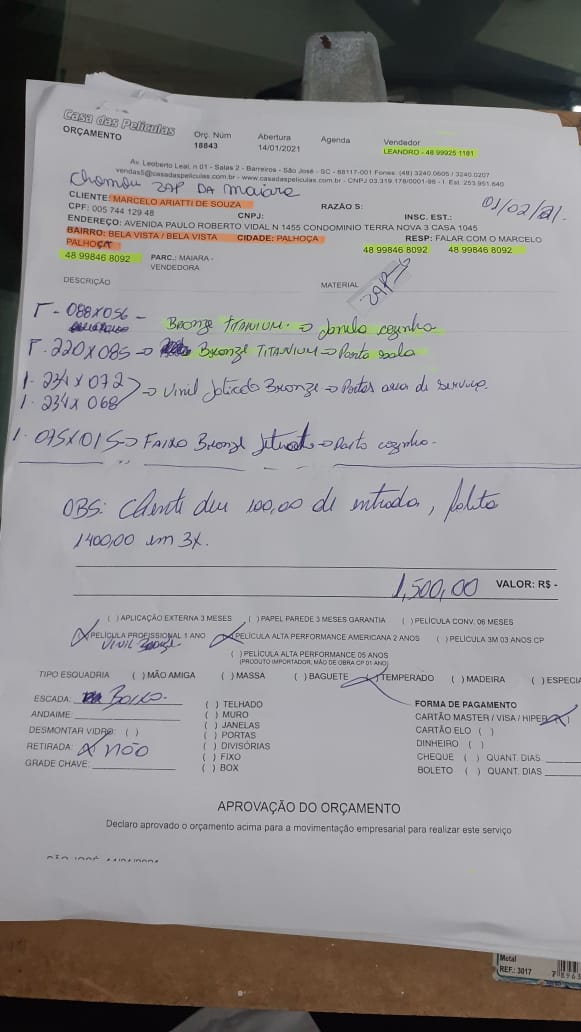 Casa das Películas
ORÇAMENTO
Orç. Núm
18843
Abertura
14/01/2021
Agenda
Vendedor
LEANDRO - 48 99925 1181
Av. Leoberto Leal, n 01 - Salas 2 - Barreiros - São José - SC - 88117-001 Fones: (48) 3240.0605 / 3240.0207
vendas5@casadaspeliculas.com.br - www.casadaspeliculas.com.br - CNPJ 03.319.178/0001-86 - I. Est. 253.951.640
Chamou ZAP DA Maiara
01/02/21.
CLIENTE: MARCELO ARIATTI DE SOUZA
RAZÃO S:
CPF: 005 744 129 48
CNPJ:
INSC. EST.:
ENDEREÇO: AVENIDA PAULO ROBERTO VIDAL N 1455 CONDOMINIO TERRA NOVA 3 CASA 1045
BAIRRO: BELA VISTA / BELA VISTA CIDADE: PALHOÇA
RESP: FALAR COM O MARCELO
PALHOÇA
48 99846 8092 48 99846 8092
48 99846 8092
PARC.: MAIARA -
VENDEDORA
DESCRIÇÃO
MATERIAL
ZAP
088x056 -
Bronze TITANIUM. → Janela cozinha
220x085 → Bronze TITANIUM → Porta sala
1. 234x072
1. 234x068
→ Vinil Jateado Bronze → Portas area de serviço.
1. 075x015 → FAIXA Bronze Jateado → Porta cozinha.
OBS: Cliente deu 100,00 de entrada, falta
1400,00 em 3x.
1,500,00 VALOR: R$ -
( ) APLICAÇÃO EXTERNA 3 MESES ( ) PAPEL PAREDE 3 MESES GARANTIA ( ) PELÍCULA CONV. 06 MESES
(X) PELÍCULA PROFISSIONAL 1 ANO (X) PELÍCULA ALTA PERFORMANCE AMERICANA 2 ANOS ( ) PELÍCULA 3M 03 ANOS CP
VINIL Bronze
( ) PELÍCULA ALTA PERFORMANCE 05 ANOS
(PRODUTO IMPORTADOR, MÃO DE OBRA CP 01 ANO)
TIPO ESQUADRIA ( ) MÃO AMIGA ( ) MASSA ( ) BAGUETE (X) TEMPERADO ( ) MADEIRA ( ) ESPECIA
ESCADA: Baixo.
ANDAIME:
DESMONTAR VIDRO: ( )
RETIRADA: X não
GRADE CHAVE:
( ) TELHADO
( ) MURO
( ) JANELAS
( ) PORTAS
( ) DIVISÓRIAS
( ) FIXO
( ) BOX
FORMA DE PAGAMENTO
CARTÃO MASTER / VISA / HIPER (X)
CARTÃO ELO ( )
DINHEIRO ( )
CHEQUE ( ) QUANT. DIAS
BOLETO ( ) QUANT. DIAS
APROVAÇÃO DO ORÇAMENTO
Declaro aprovado o orçamento acima para a movimentação empresarial para realizar este serviço
Metal
REF.: 3017
7 8963